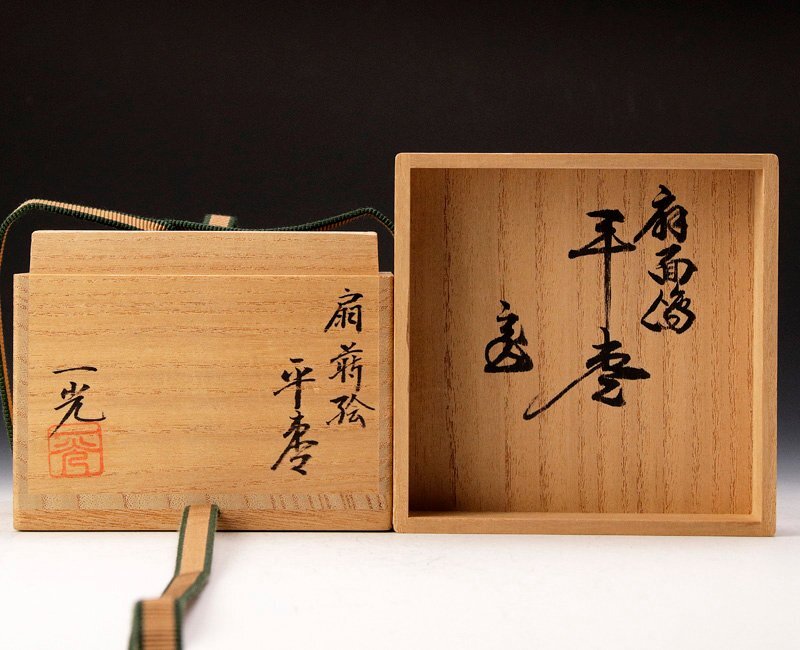 扇蒔絵
平棗
一光
扇面
平棗